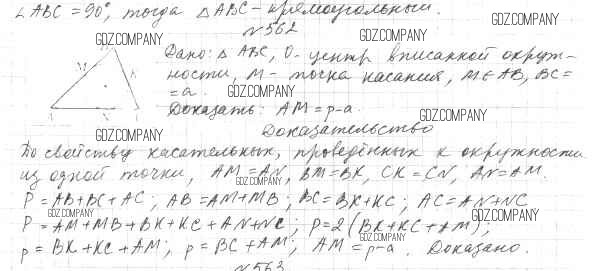 ∠ABC = 90°, тогда △ABC - прямоугольный.
№562
GDZ.COMPANY
GDZ.COMPANY
GDZ.COMPANY
Дано: △ ABC, O - центр вписанной окруж-
ности, M - точка касания, M∈AB, BC =
= a.
GDZ.COMPANY
Доказать: AM = p-a.
GDZ.COMPANY
GDZ.COMPANY
Доказательство
По свойству касательных, проведённых к окружности
из одной точки, AM = AN, BM = BK, CK = CN, AN = AM.
GDZ.COMPANY
P = AB + BC + AC; AB = AM + MB; BC = BK + KC; AC = AN + NC
GDZ.COMPANY
GDZ.COMPANY
P = AM + MB + BK + KC + AN + NC; P = 2(BK + KC + AM);
GDZ.COMPANY
p = BK + KC + AM; p = BC + AM; AM = p-a. Доказано.
№563